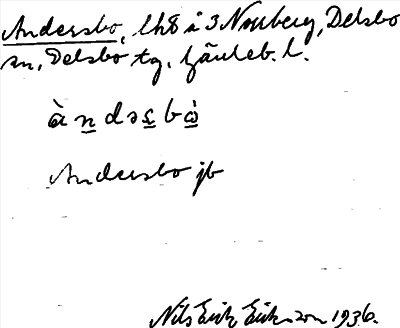 Andersbo, lh8 å 3 Norrberg, Delsbo
sn, Delsbo tg, Gävleb. l.
àndəsbò
Andersbo jb
Nils Erik Eriksson 1936.